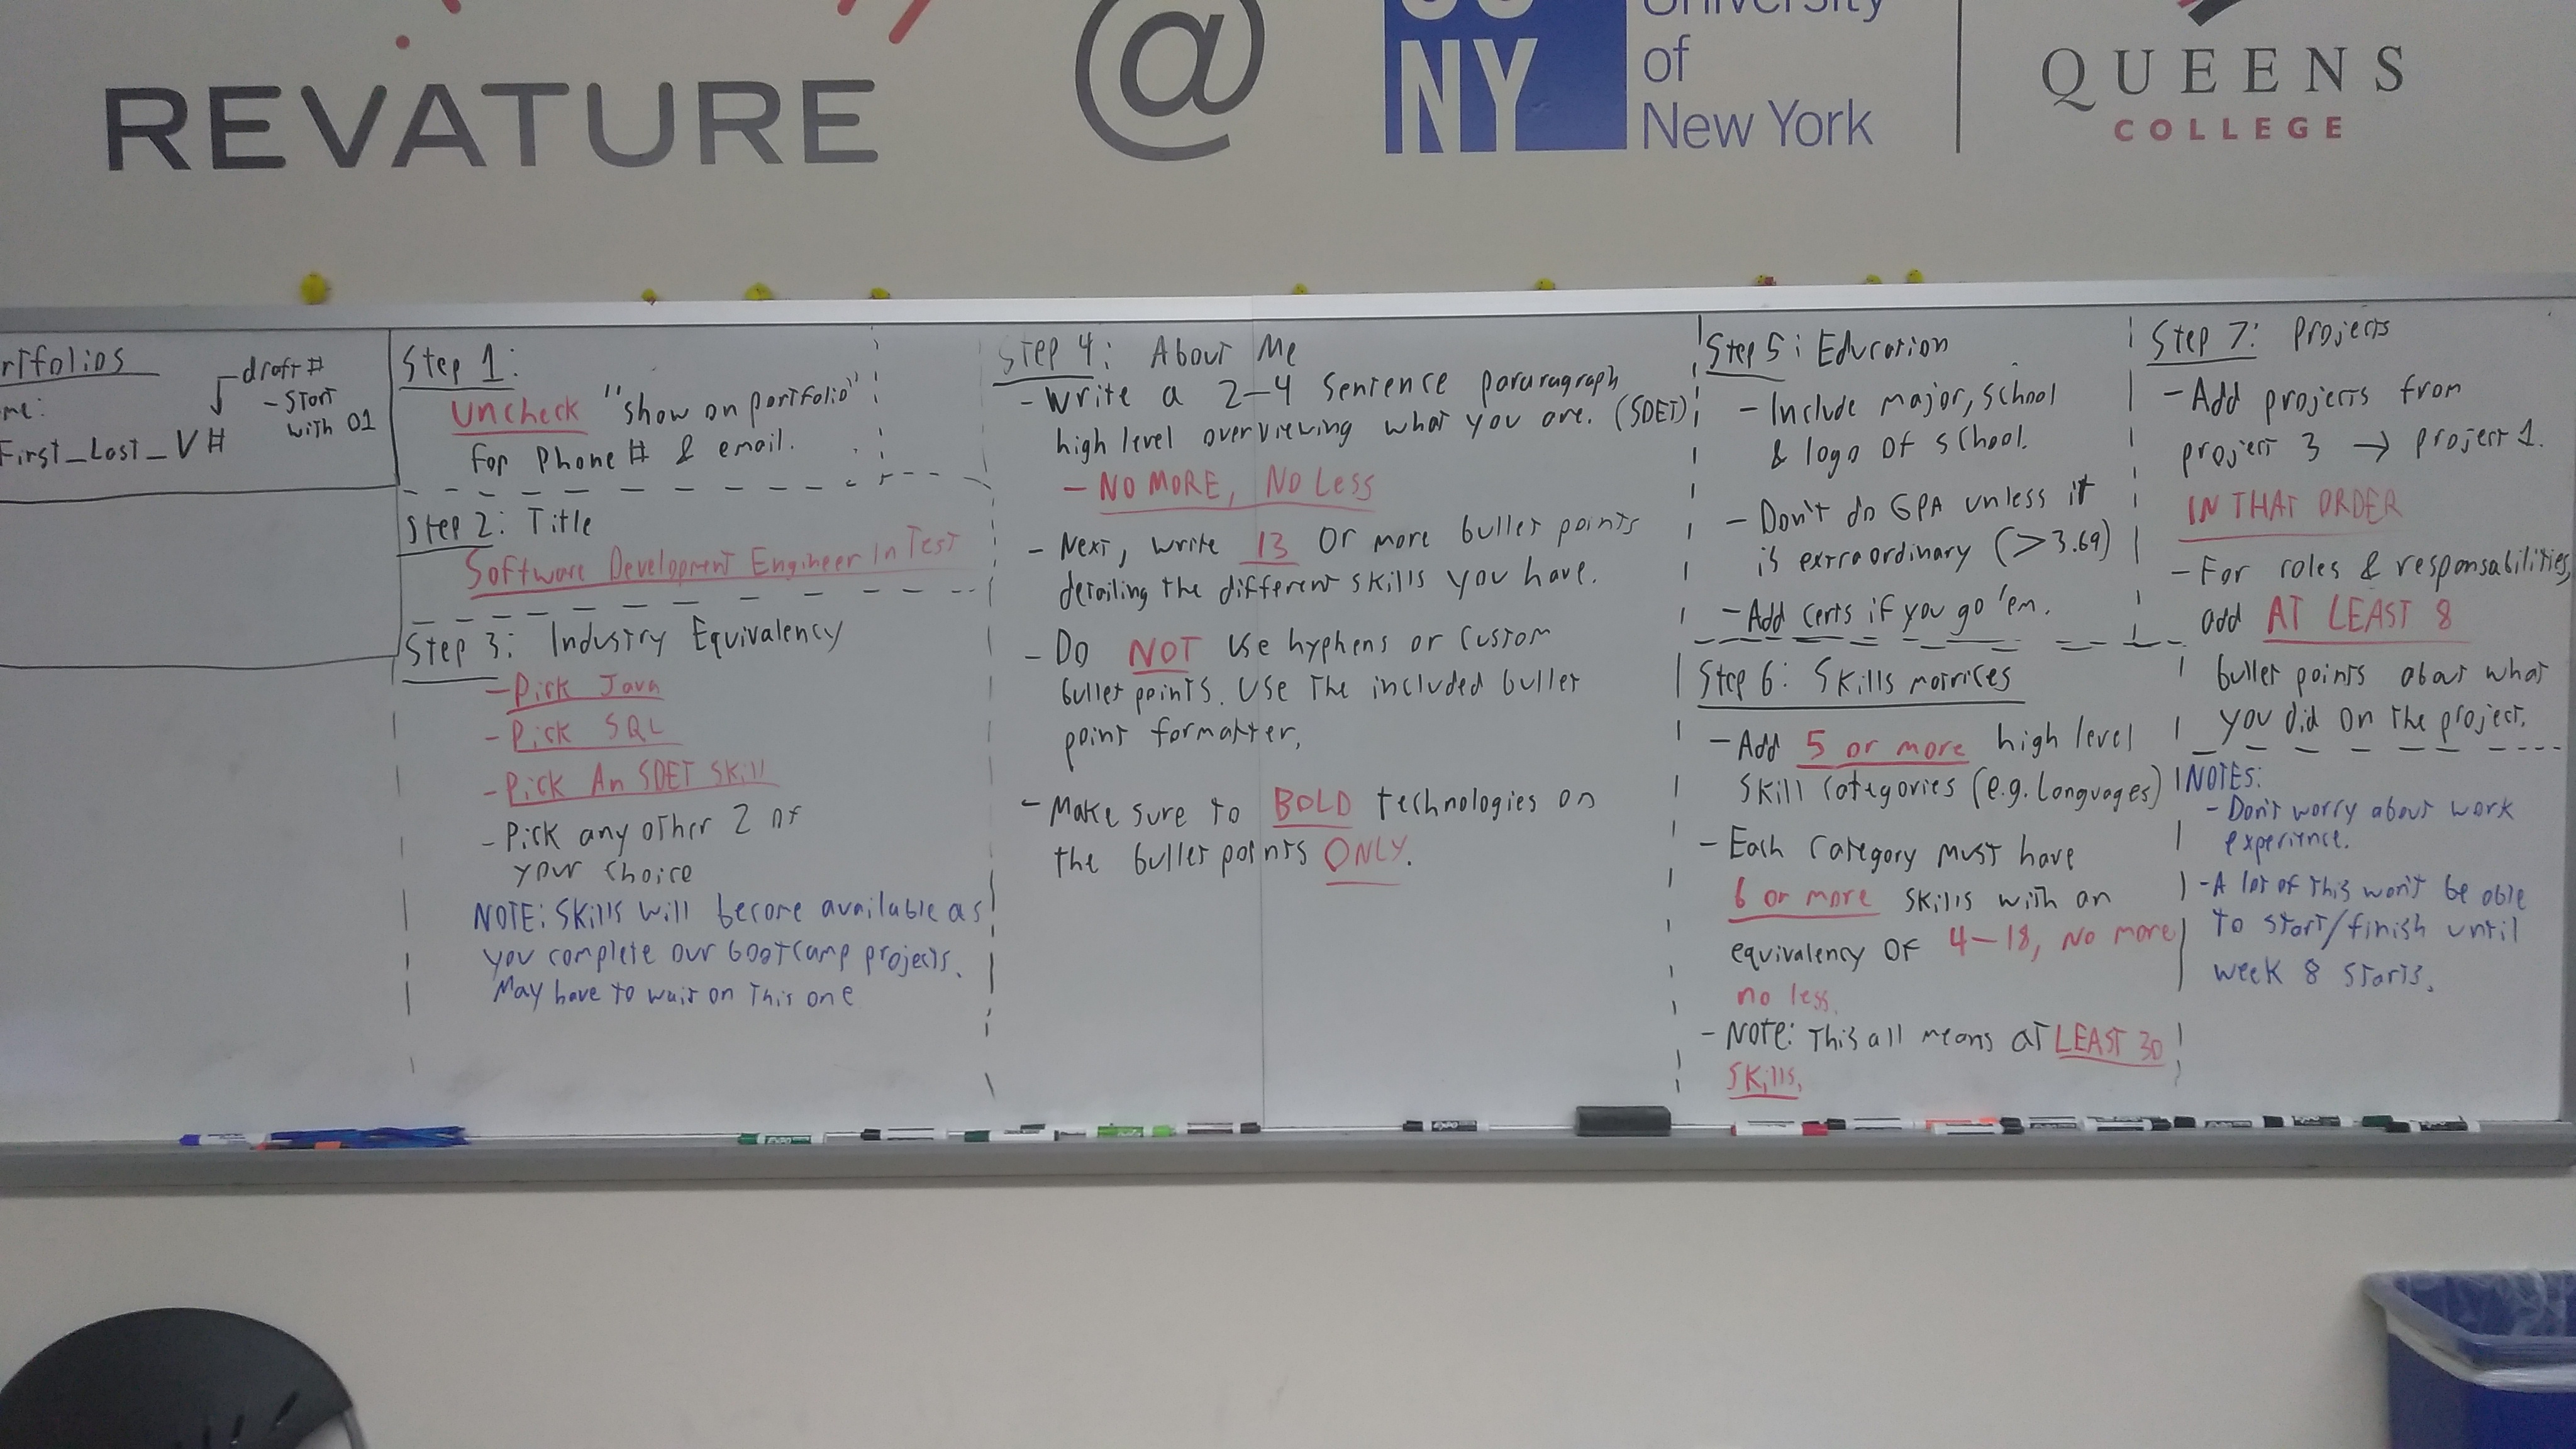 REVATURE
@
NY
University
of
New York
QUEENS
COLLEGE
rtfolios
me:
First_Last_V#
draft #
- Start
with 01
Step 1:
Uncheck "show on portfolio"
for Phone # & email.
Step 2: Title
Software Development Engineer in Test
Step 3: Industry Equivalency
- Pick Java
- Pick SQL
- Pick An SDET Skill
- Pick any other 2 of
your choice
NOTE: Skills will become available as
you complete our bootcamp projects.
May have to wait on this one
Step 4: About Me
- Write a 2-4 sentence pararagraph
high level overviewing what you are. (SDET)
- NO MORE, NO Less
- Next, write 13 or more bullet points
detailing the different skills you have.
- Do NOT use hyphens or custom
bullet points. Use the included bullet
point formatter.
- Make sure to BOLD technologies on
the bullet points ONLY.
Step 5: Education
- Include major, school
& logo of school.
- Don't do GPA unless it
is extraordinary (>3.69)
- Add certs if you go 'em.
Step 6: Skills matrices
- Add 5 or more high level
skill categories (e.g. languages)
- Each category must have
6 or more skills with an
equivalency of 4-18, no more
no less.
- Note: This all means at LEAST 30
skills.
Step 7: Projects
- Add projects from
project 3 → project 1.
IN THAT ORDER
- For roles & responsabilities,
add AT LEAST 8
bullet points about what
you did on the project.
NOTES:
- Don't worry about work
experience.
- A lot of this won't be able
to start/finish until
week 8 starts.